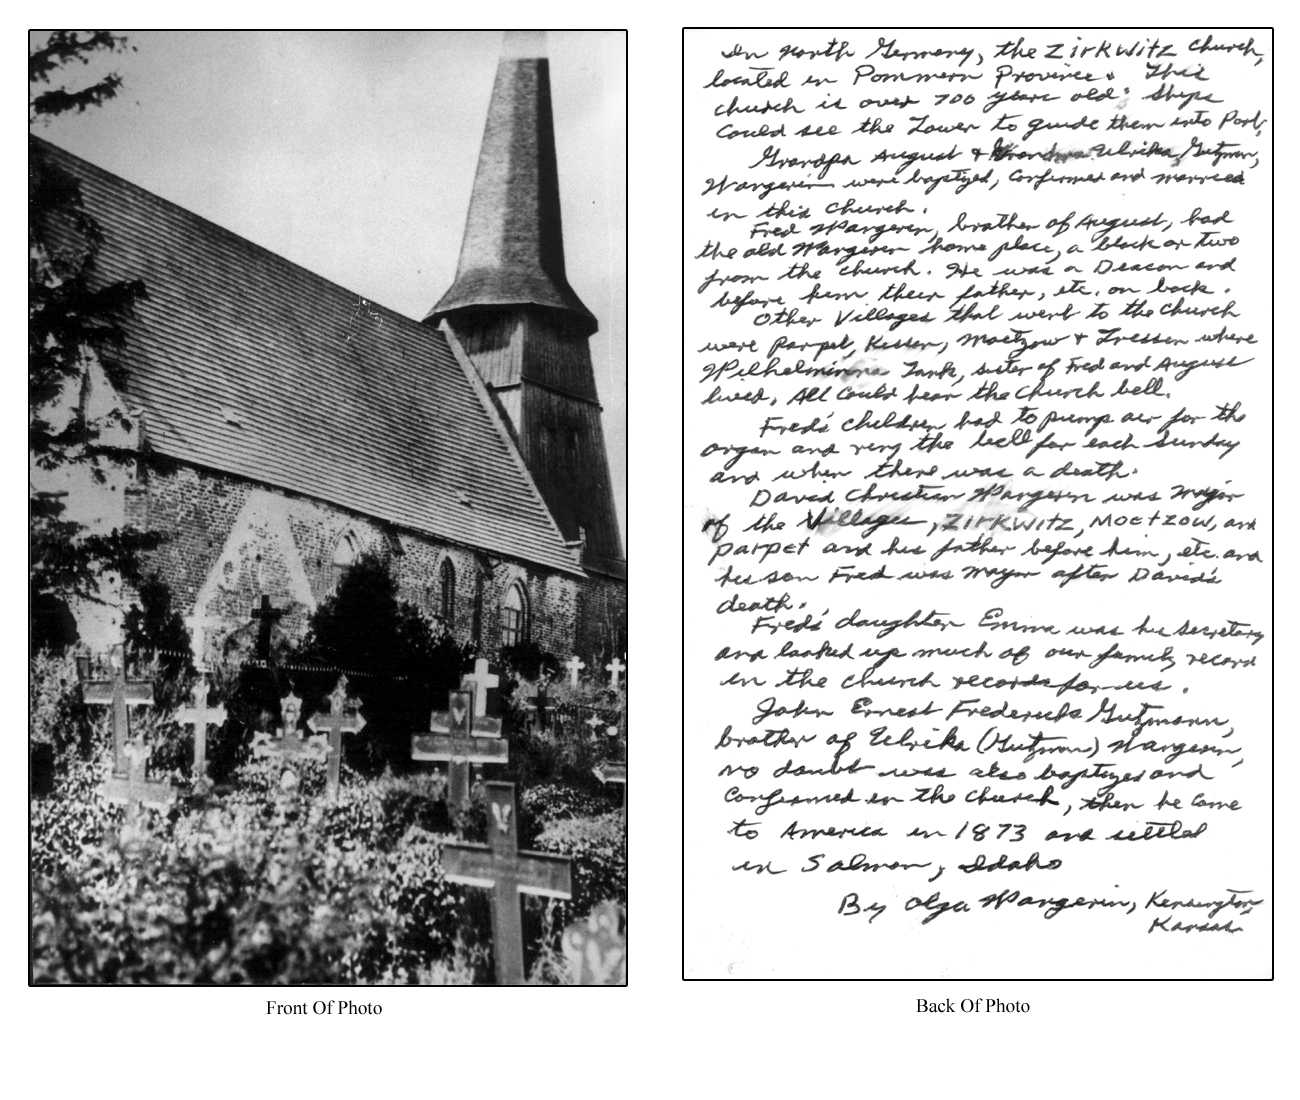 In North Germany, the ZIRKWITZ Church,
located in Pommern Province. This
church is over 700 years old. Ships
could see the Tower to guide them into Port.
Grandpa August & Grandma Ulrika Gutzman,
Wangerin were baptized, confirmed and married
in this church.
Fred Wangerin, brother of August, had
the old Wangerin home place, a block or two
from the church. He was a Deacon and
before him their father, etc. on back.
Other Villages that went to the Church
were Parpet, Kusser, Moetzow & Tressen where
Wilhelminna Tank, sister of Fred and August
lived. All could hear the Church bell.
Fred's children had to pump air for the
organ and ring the bell for each Sunday
and when there was a death.
David Christian Wangerin was Major
of the Villages, ZIRKWITZ, MOETZOW, and
Parpet and his father before him, etc. and
his son Fred was Mayor after David's
death.
Fred's daughter Emma was his secretary
and looked up much of our family record
in the church records for us.
John Ernest Fredericks Gutzmann,
brother of Ulrika (Gutzman) Wangerin,
no doubt was also baptized and
confirmed in the church, then he came
to America in 1873 and settled
in Salmon, Idaho
By Olga Wangerin, Kensington,
Kansas
Front Of Photo
Back Of Photo